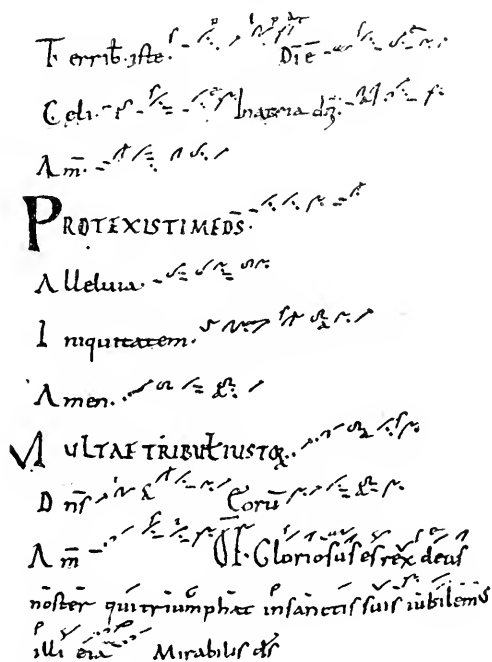 Terrib̄. iste. Dīē
Celi. In atria
Am̄.
PROTEXISTI ME DS̄.
Alleluia.
Iniquitatem.
Amen.
MULTAE TRIBUŁ IUSTOꝜ.
Dn̄s Eorū
Am̄ Gloriosus es rex deus
noster qui triumphat in sanctis suis iubilem̄s
illi eia Mirabilis ds̄